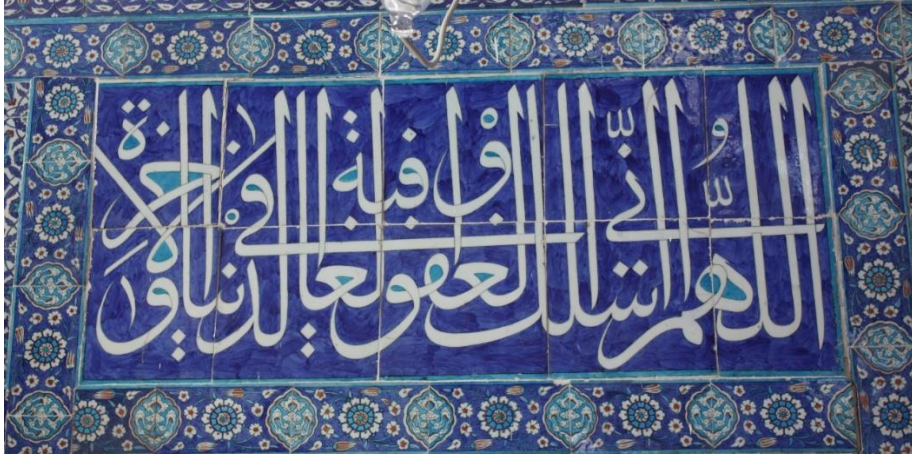 اللهم اني اسئلك العفو والعافية في الدنيا والاخرة